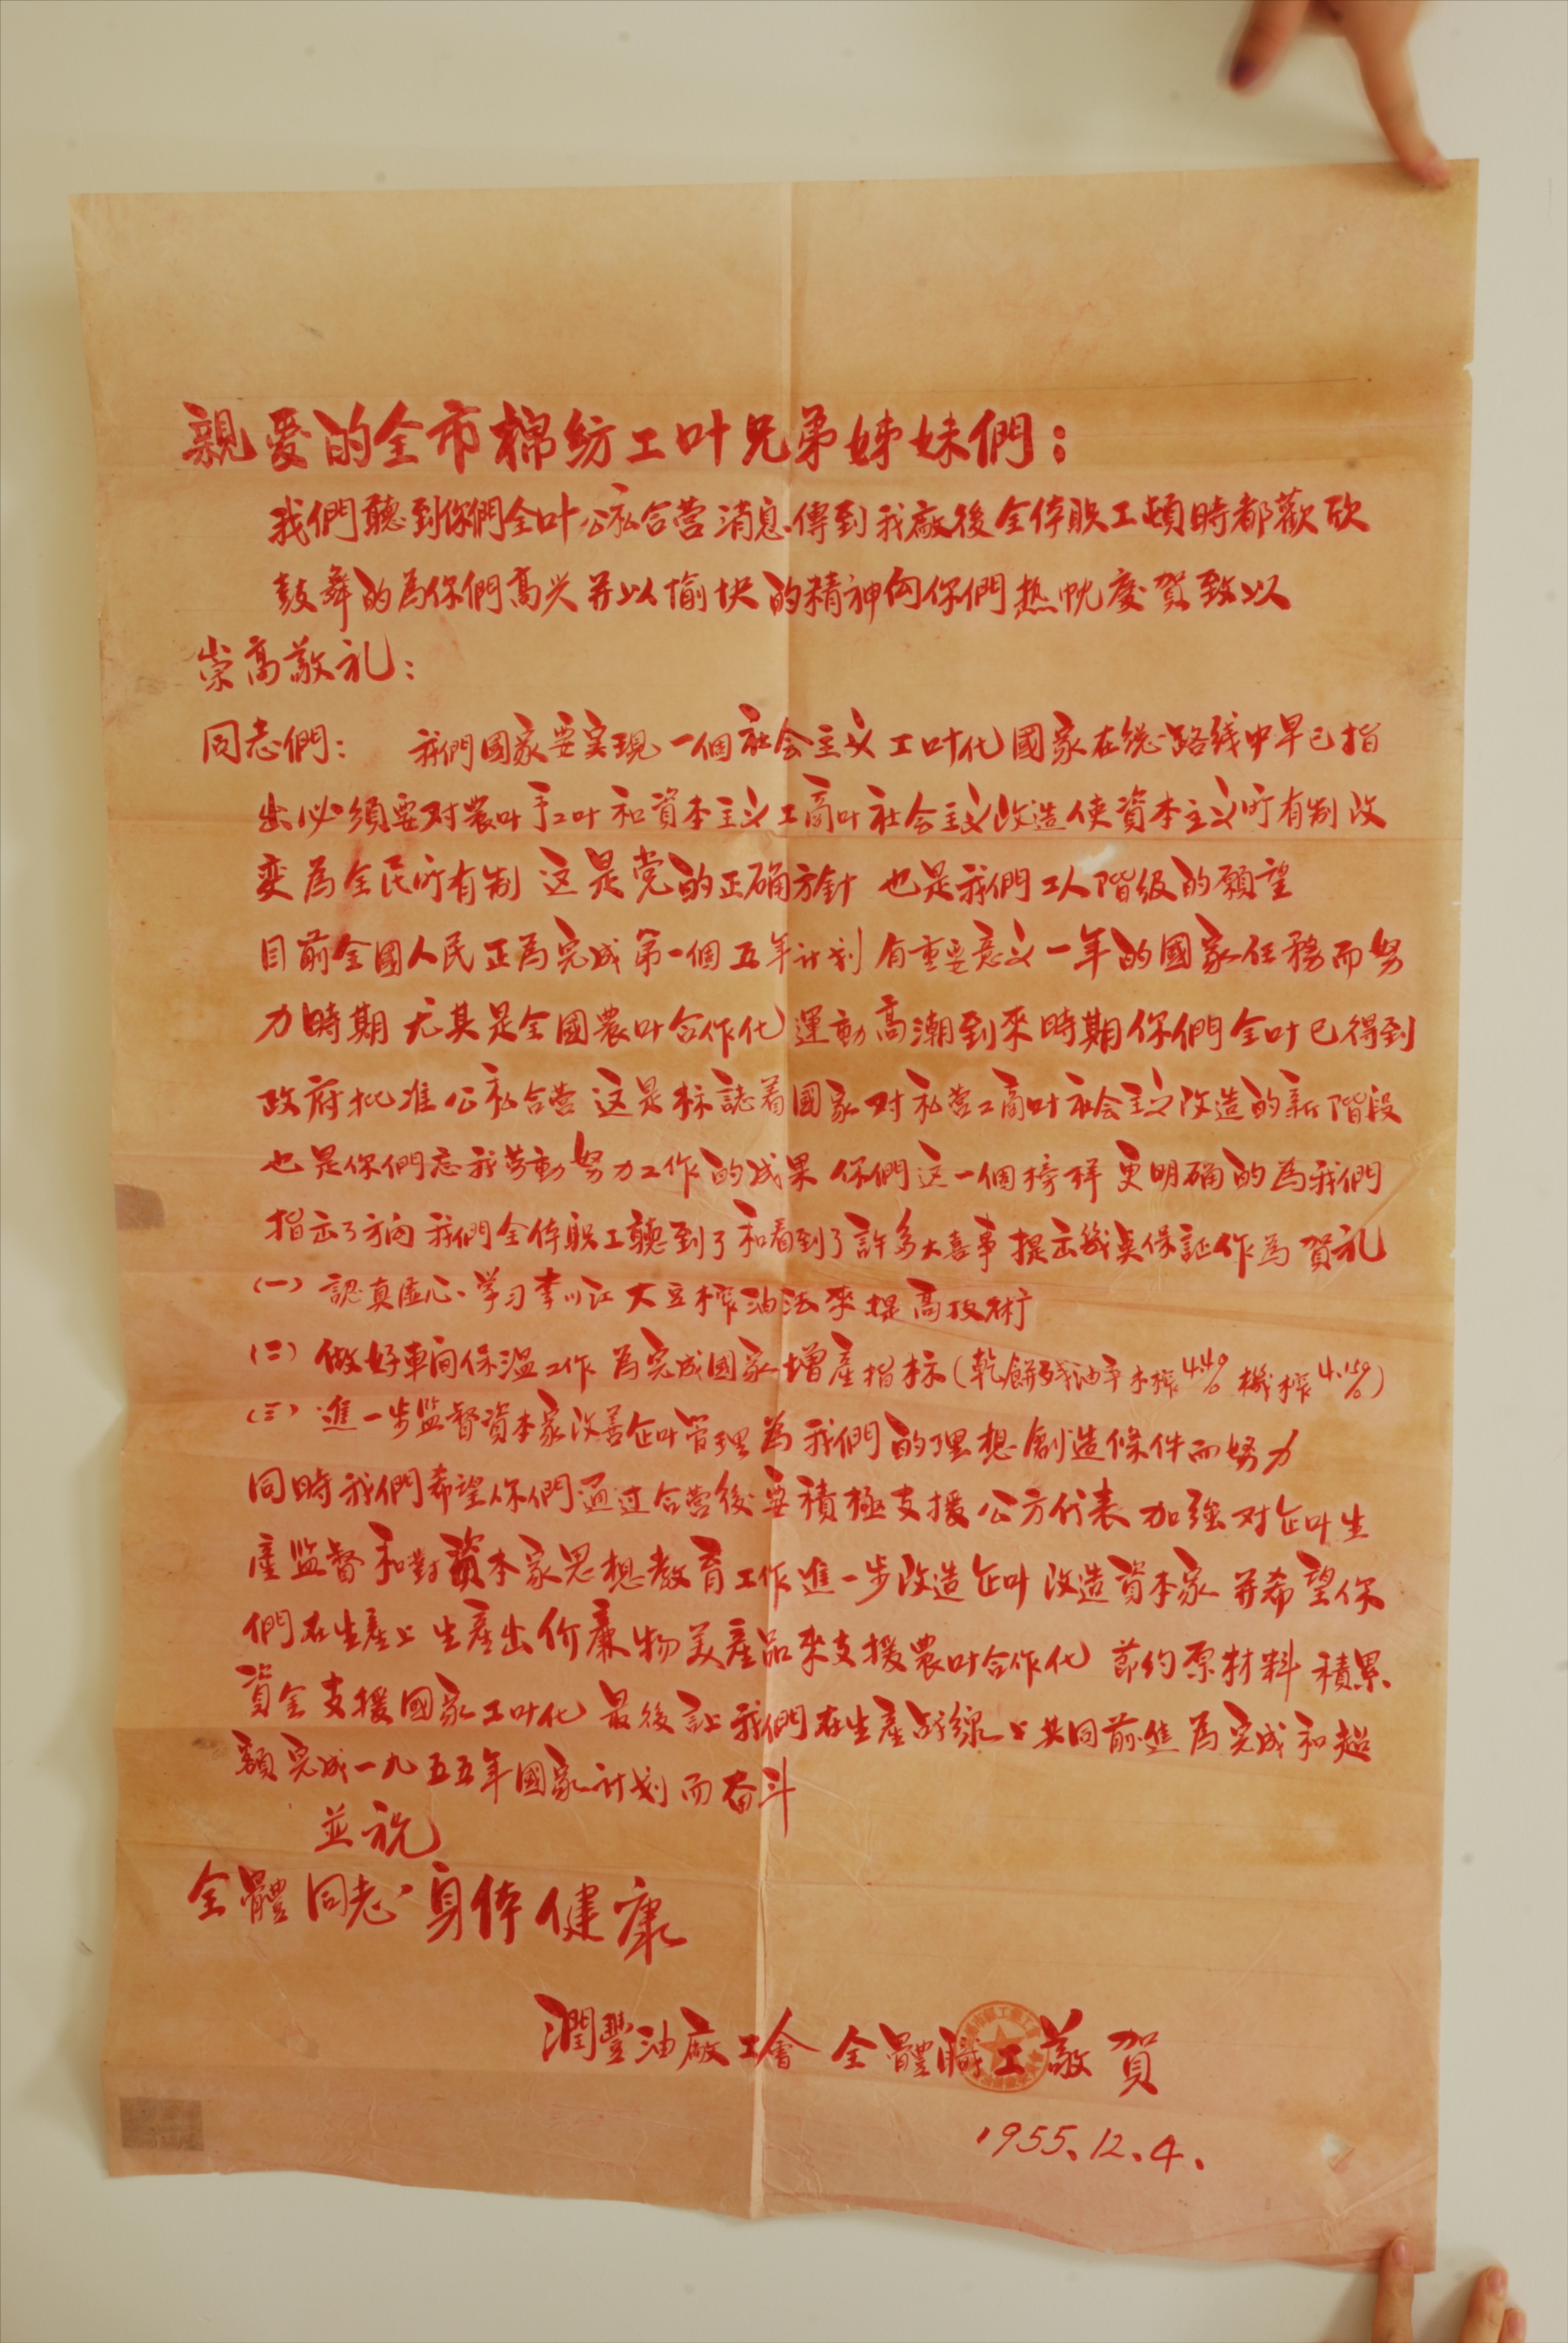 親爱的全市棉紡工叶兄弟姊妹們：
我們聽到你們全叶公私合营消息傳到我廠後全体职工頓時都歡欣
鼓舞的為你們高兴并以愉快的精神向你們热忱慶賀致以
崇高敬礼：
同志們： 我們國家要实現一個社会主义工叶化國家在総路线中早已指
出必須要对農叶手工叶和資本主义工商叶社会主义改造使資本主义所有制改
变為全民所有制 这是党的正确方針 也是我們工人階級的願望
目前全國人民正為完成第一個五年计划有重要意义一年的國家任務而努
力時期 尤其是全國農叶合作化運動高潮到來時期你們全叶已得到
政府批准公私合营 这是标誌着國家对私营工商叶社会主义改造的新階段
也是你們忘我劳動努力工作的成果 你們这一個榜样更明确的為我們
指示了方向 我們全体职工聽到了和看到了許多大喜事 提出幾奌保証作為賀礼
(一) 認真虚心学习李川江大豆榨油法來提高技術
(二) 做好車间保温工作 為完成國家增產指标(乾餅残油率木榨4.4% 機榨4.15%)
(三) 進一步监督資本家改善企叶管理為我們的理想創造條件而努力
同時我們希望你們通过合营後要積極支援公方代表加强对企叶生
產监督和對資本家思想教育工作進一步改造企叶改造資本家并希望你
們在生產上生產出价廉物美產品來支援農叶合作化 節约原材料 積累
資金支援國家工叶化 最後讓我們在生產战線上共同前進為完成和超
額完成一九五五年國家计划而奋斗
並祝
全體同志身体健康
潤豐油廠工會 全體職工敬賀
1955.12.4.